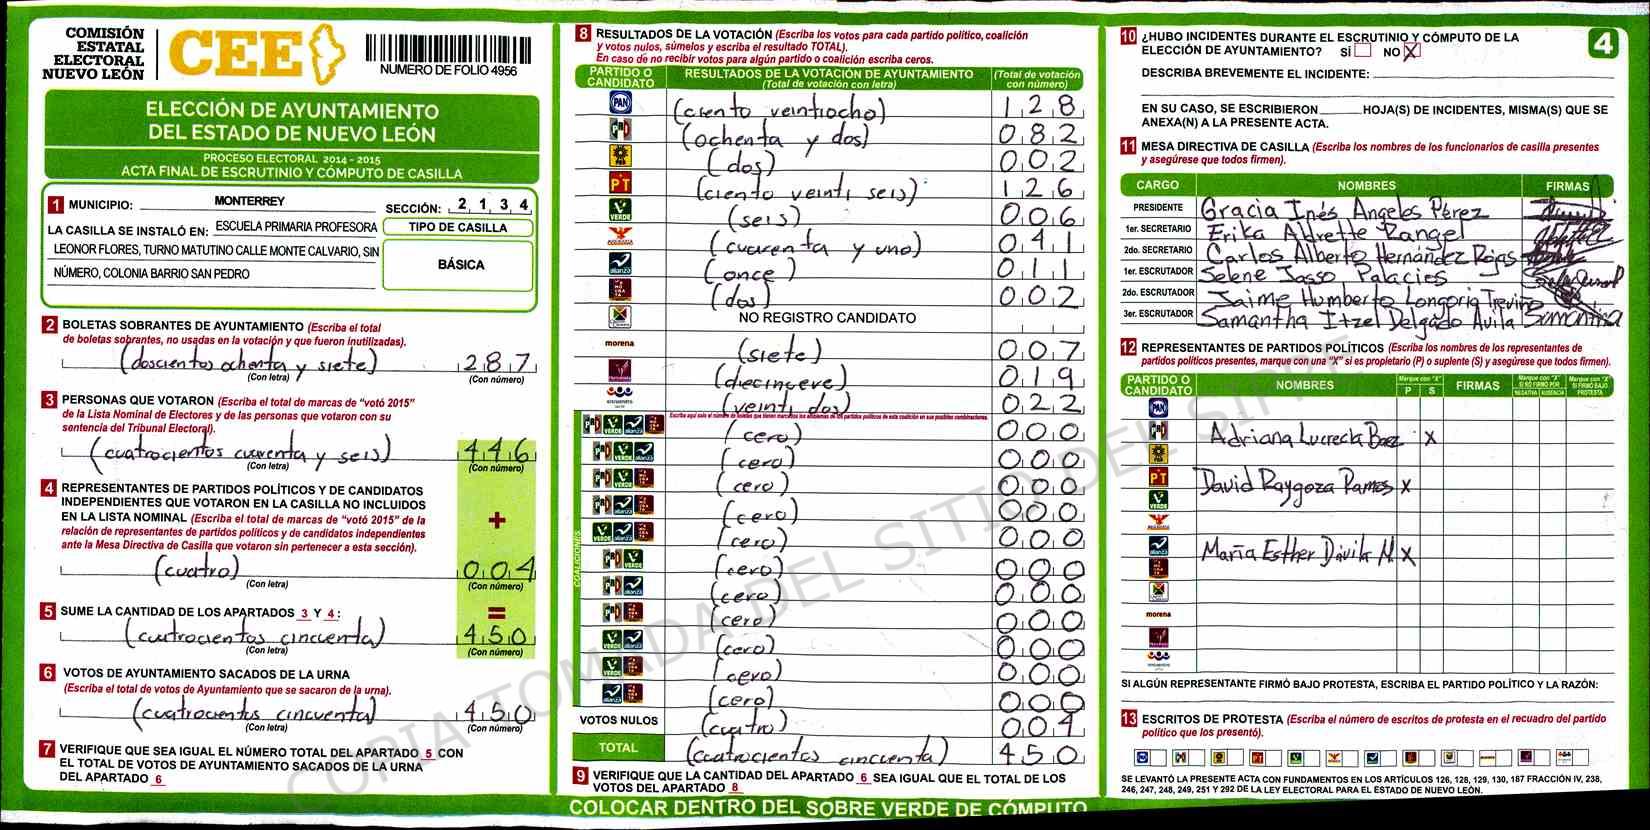 COMISIÓN
ESTATAL
ELECTORAL
NUEVO LEÓN
CEE
NUMERO DE FOLIO 4956
ELECCIÓN DE AYUNTAMIENTO
DEL ESTADO DE NUEVO LEÓN
PROCESO ELECTORAL 2014 - 2015
ACTA FINAL DE ESCRUTINIO Y CÓMPUTO DE CASILLA
1 MUNICIPIO: MONTERREY SECCIÓN: 2 1 3 4
LA CASILLA SE INSTALÓ EN: ESCUELA PRIMARIA PROFESORA
LEONOR FLORES, TURNO MATUTINO CALLE MONTE CALVARIO, SIN
NÚMERO, COLONIA BARRIO SAN PEDRO
TIPO DE CASILLA
BÁSICA
2 BOLETAS SOBRANTES DE AYUNTAMIENTO (Escriba el total
de boletas sobrantes, no usadas en la votación y que fueron inutilizadas).
(doscientos ochenta y siete) 2 8 7
(Con letra) (Con número)
3 PERSONAS QUE VOTARON (Escriba el total de marcas de "votó 2015"
de la Lista Nominal de Electores y de las personas que votaron con su
sentencia del Tribunal Electoral).
(cuatrocientos cuarenta y seis) 4 4 6
(Con letra) (Con número)
4 REPRESENTANTES DE PARTIDOS POLÍTICOS Y DE CANDIDATOS
INDEPENDIENTES QUE VOTARON EN LA CASILLA NO INCLUIDOS
EN LA LISTA NOMINAL (Escriba el total de marcas de "votó 2015" de la
relación de representantes de partidos políticos y de candidatos independientes
ante la Mesa Directiva de Casilla que votaron sin pertenecer a esta sección).
+
(cuatro) 0 0 4
(Con letra) (Con número)
5 SUME LA CANTIDAD DE LOS APARTADOS 3 Y 4: =
(cuatrocientos cincuenta) 4 5 0
(Con letra) (Con número)
6 VOTOS DE AYUNTAMIENTO SACADOS DE LA URNA
(Escriba el total de votos de Ayuntamiento que se sacaron de la urna).
(cuatrocientos cincuenta) 4 5 0
(Con letra) (Con número)
7 VERIFIQUE QUE SEA IGUAL EL NÚMERO TOTAL DEL APARTADO 5 CON
EL TOTAL DE VOTOS DE AYUNTAMIENTO SACADOS DE LA URNA
DEL APARTADO 6
8 RESULTADOS DE LA VOTACIÓN (Escriba los votos para cada partido político, coalición
y votos nulos, súmelos y escriba el resultado TOTAL).
En caso de no recibir votos para algún partido o coalición escriba ceros.
PARTIDO O CANDIDATO RESULTADOS DE LA VOTACIÓN DE AYUNTAMIENTO (Total de votación con letra) (Total de votación con número)
PAN (ciento veintiocho) 1 2 8
PRI (ochenta y dos) 0 8 2
PRD (dos) 0 0 2
PT (ciento veinti seis) 1 2 6
VERDE (seis) 0 0 6
(cuarenta y uno) 0 4 1
alianza (once) 0 1 1
(dos) 0 0 2
NO REGISTRO CANDIDATO
morena (siete) 0 0 7
(diecinueve) 0 1 9
encuentro (veinti dos) 0 2 2
COALICIONES
(cero) 0 0 0
(cero) 0 0 0
(cero) 0 0 0
(cero) 0 0 0
(cero) 0 0 0
(cero) 0 0 0
(cero) 0 0 0
(cero) 0 0 0
(cero) 0 0 0
(cero) 0 0 0
(cero) 0 0 0
VOTOS NULOS (cuatro) 0 0 4
TOTAL (cuatrocientos cincuenta) 4 5 0
9 VERIFIQUE QUE LA CANTIDAD DEL APARTADO 6 SEA IGUAL QUE EL TOTAL DE LOS
VOTOS DEL APARTADO 8
COLOCAR DENTRO DEL SOBRE VERDE DE CÓMPUTO
10 ¿HUBO INCIDENTES DURANTE EL ESCRUTINIO Y CÓMPUTO DE LA
ELECCIÓN DE AYUNTAMIENTO? SÍ NO X
4
DESCRIBA BREVEMENTE EL INCIDENTE:
EN SU CASO, SE ESCRIBIERON HOJA(S) DE INCIDENTES, MISMA(S) QUE SE
ANEXA(N) A LA PRESENTE ACTA.
11 MESA DIRECTIVA DE CASILLA (Escriba los nombres de los funcionarios de casilla presentes
y asegúrese que todos firmen).
CARGO NOMBRES FIRMAS
PRESIDENTE Gracia Inés Angeles Pérez
1er. SECRETARIO Erika Aldrette Rangel
2do. SECRETARIO Carlos Alberto Hernández Rojas
1er. ESCRUTADOR Selene Jasso Palacios
2do. ESCRUTADOR Jaime Humberto Longoria Treviño
3er. ESCRUTADOR Samantha Itzel Delgado Avila Samantha
12 REPRESENTANTES DE PARTIDOS POLÍTICOS (Escriba los nombres de los representantes de
partidos políticos presentes, marque con una "X" si es propietario (P) o suplente (S) y asegúrese que todos firmen).
PARTIDO O CANDIDATO NOMBRES Marque con "X" P S FIRMAS Marque con "X" SI NO FIRMÓ POR NEGATIVA AUSENCIA Marque con "X" SI FIRMÓ BAJO PROTESTA
PAN
PRI Adriana Lucrecia Baez X
PRD
PT David Raygoza Ramos X
VERDE
alianza María Esther Dávila M. X
morena
encuentro
SI ALGÚN REPRESENTANTE FIRMÓ BAJO PROTESTA, ESCRIBA EL PARTIDO POLÍTICO Y LA RAZÓN:
13 ESCRITOS DE PROTESTA (Escriba el número de escritos de protesta en el recuadro del partido
político que los presentó).
SE LEVANTÓ LA PRESENTE ACTA CON FUNDAMENTOS EN LOS ARTÍCULOS 126, 128, 129, 130, 187 FRACCIÓN IV, 238,
246, 247, 248, 249, 251 Y 292 DE LA LEY ELECTORAL PARA EL ESTADO DE NUEVO LEÓN.
COPIA TOMADA DEL SITIO DEL SIPRE